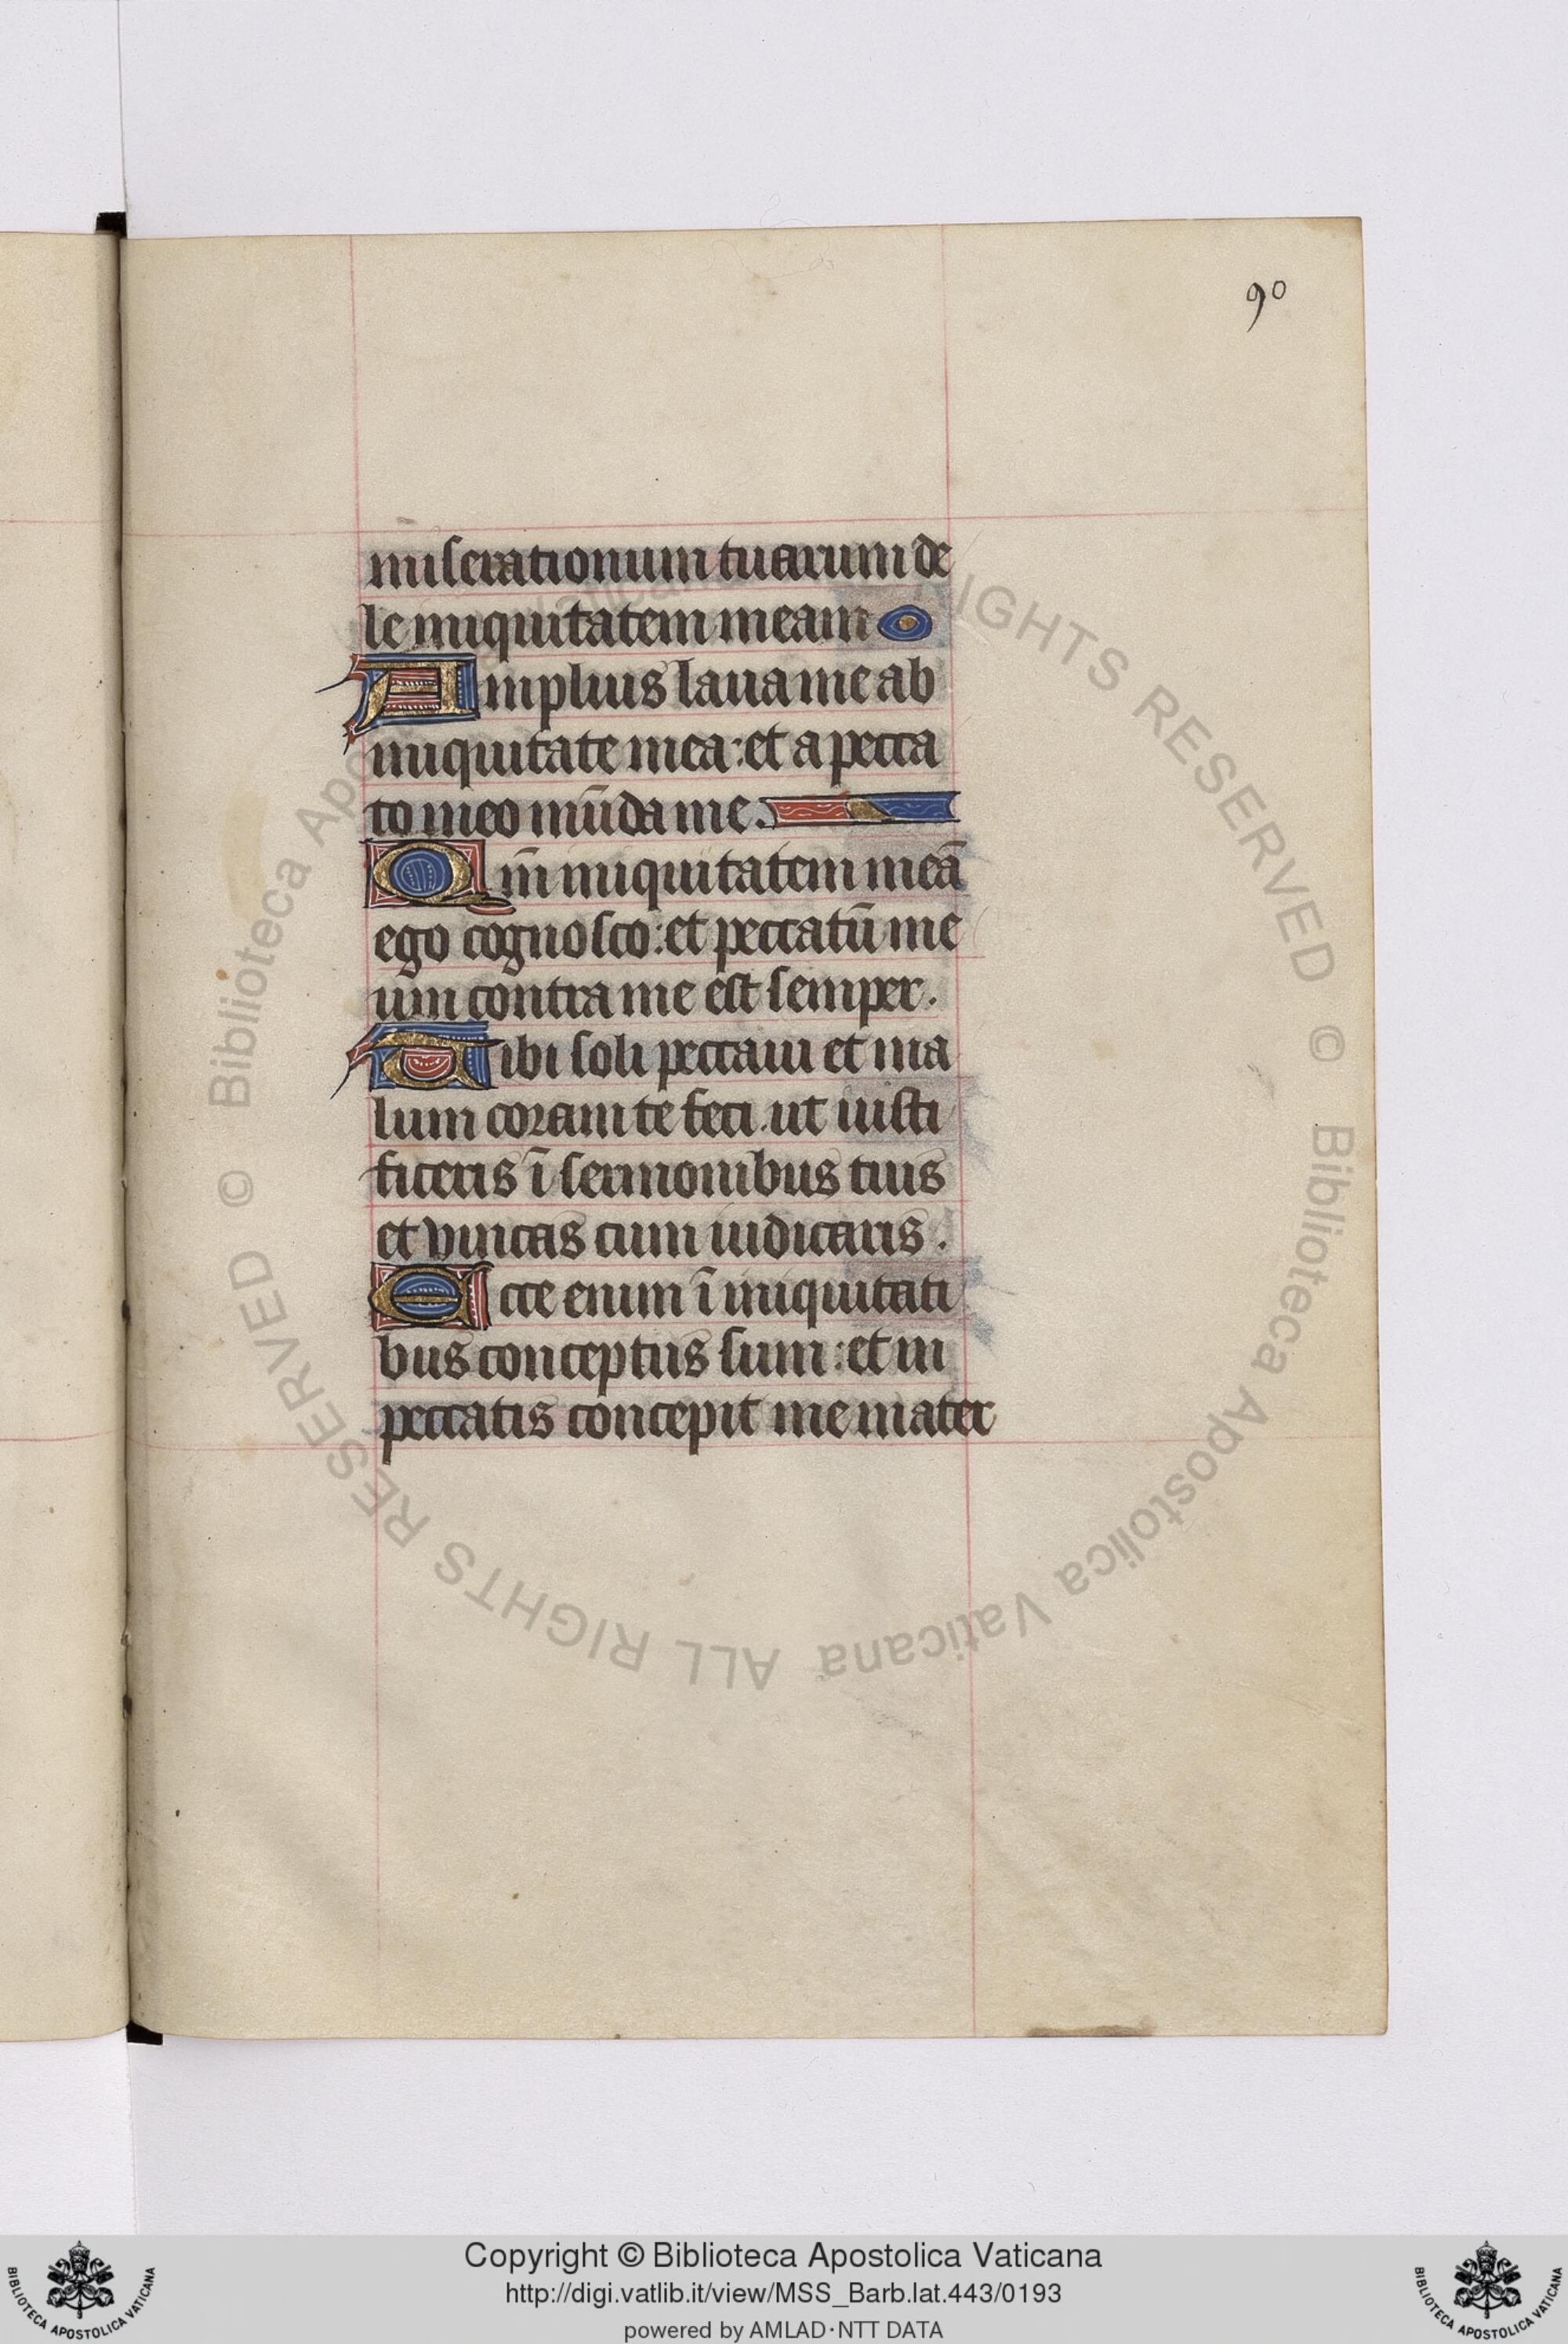 90
miserationum tuarum de
le iniquitatem meam
Amplius laua me ab
iniquitate mea: et a pecca
to meo mūda me.
Qm̄ iniquitatem meā
ego cognosco: et peccatū me
um contra me est semper.
Tibi soli peccaui et ma
lum coram te feci. ut iusti
ficeris ī sermonibus tuis
et vincas cum iudicaris.
Ecce enim ī iniquitati
bus conceptus sum: et in
peccatis concepit me mater
© Biblioteca Apostolica Vaticana ALL RIGHTS RESERVED
© Biblioteca Apostolica Vaticana ALL RIGHTS RESERVED
Copyright © Biblioteca Apostolica Vaticana
http://digi.vatlib.it/view/MSS_Barb.lat.443/0193
powered by AMLAD·NTT DATA
BIBLIOTECA APOSTOLICA VATICANA
BIBLIOTECA APOSTOLICA VATICANA